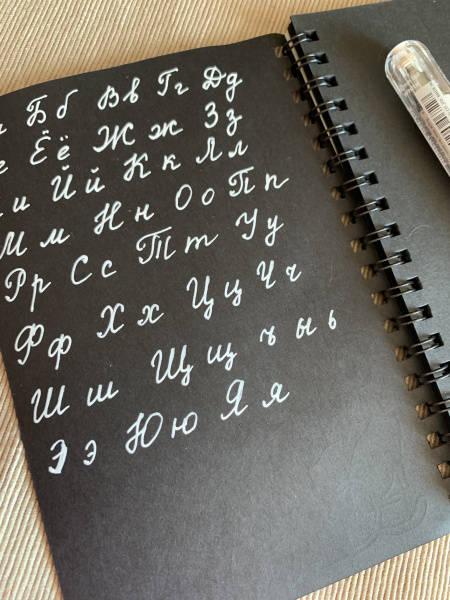 а Б б В в Г г Д д
е Ё ё Ж ж З з
и Й й К к Л л
М м Н н О о П п
Р р С с Т т У у
Ф ф Х х Ц ц Ч ч
Ш ш Щ щ ъ ы ь
Э э Ю ю Я я